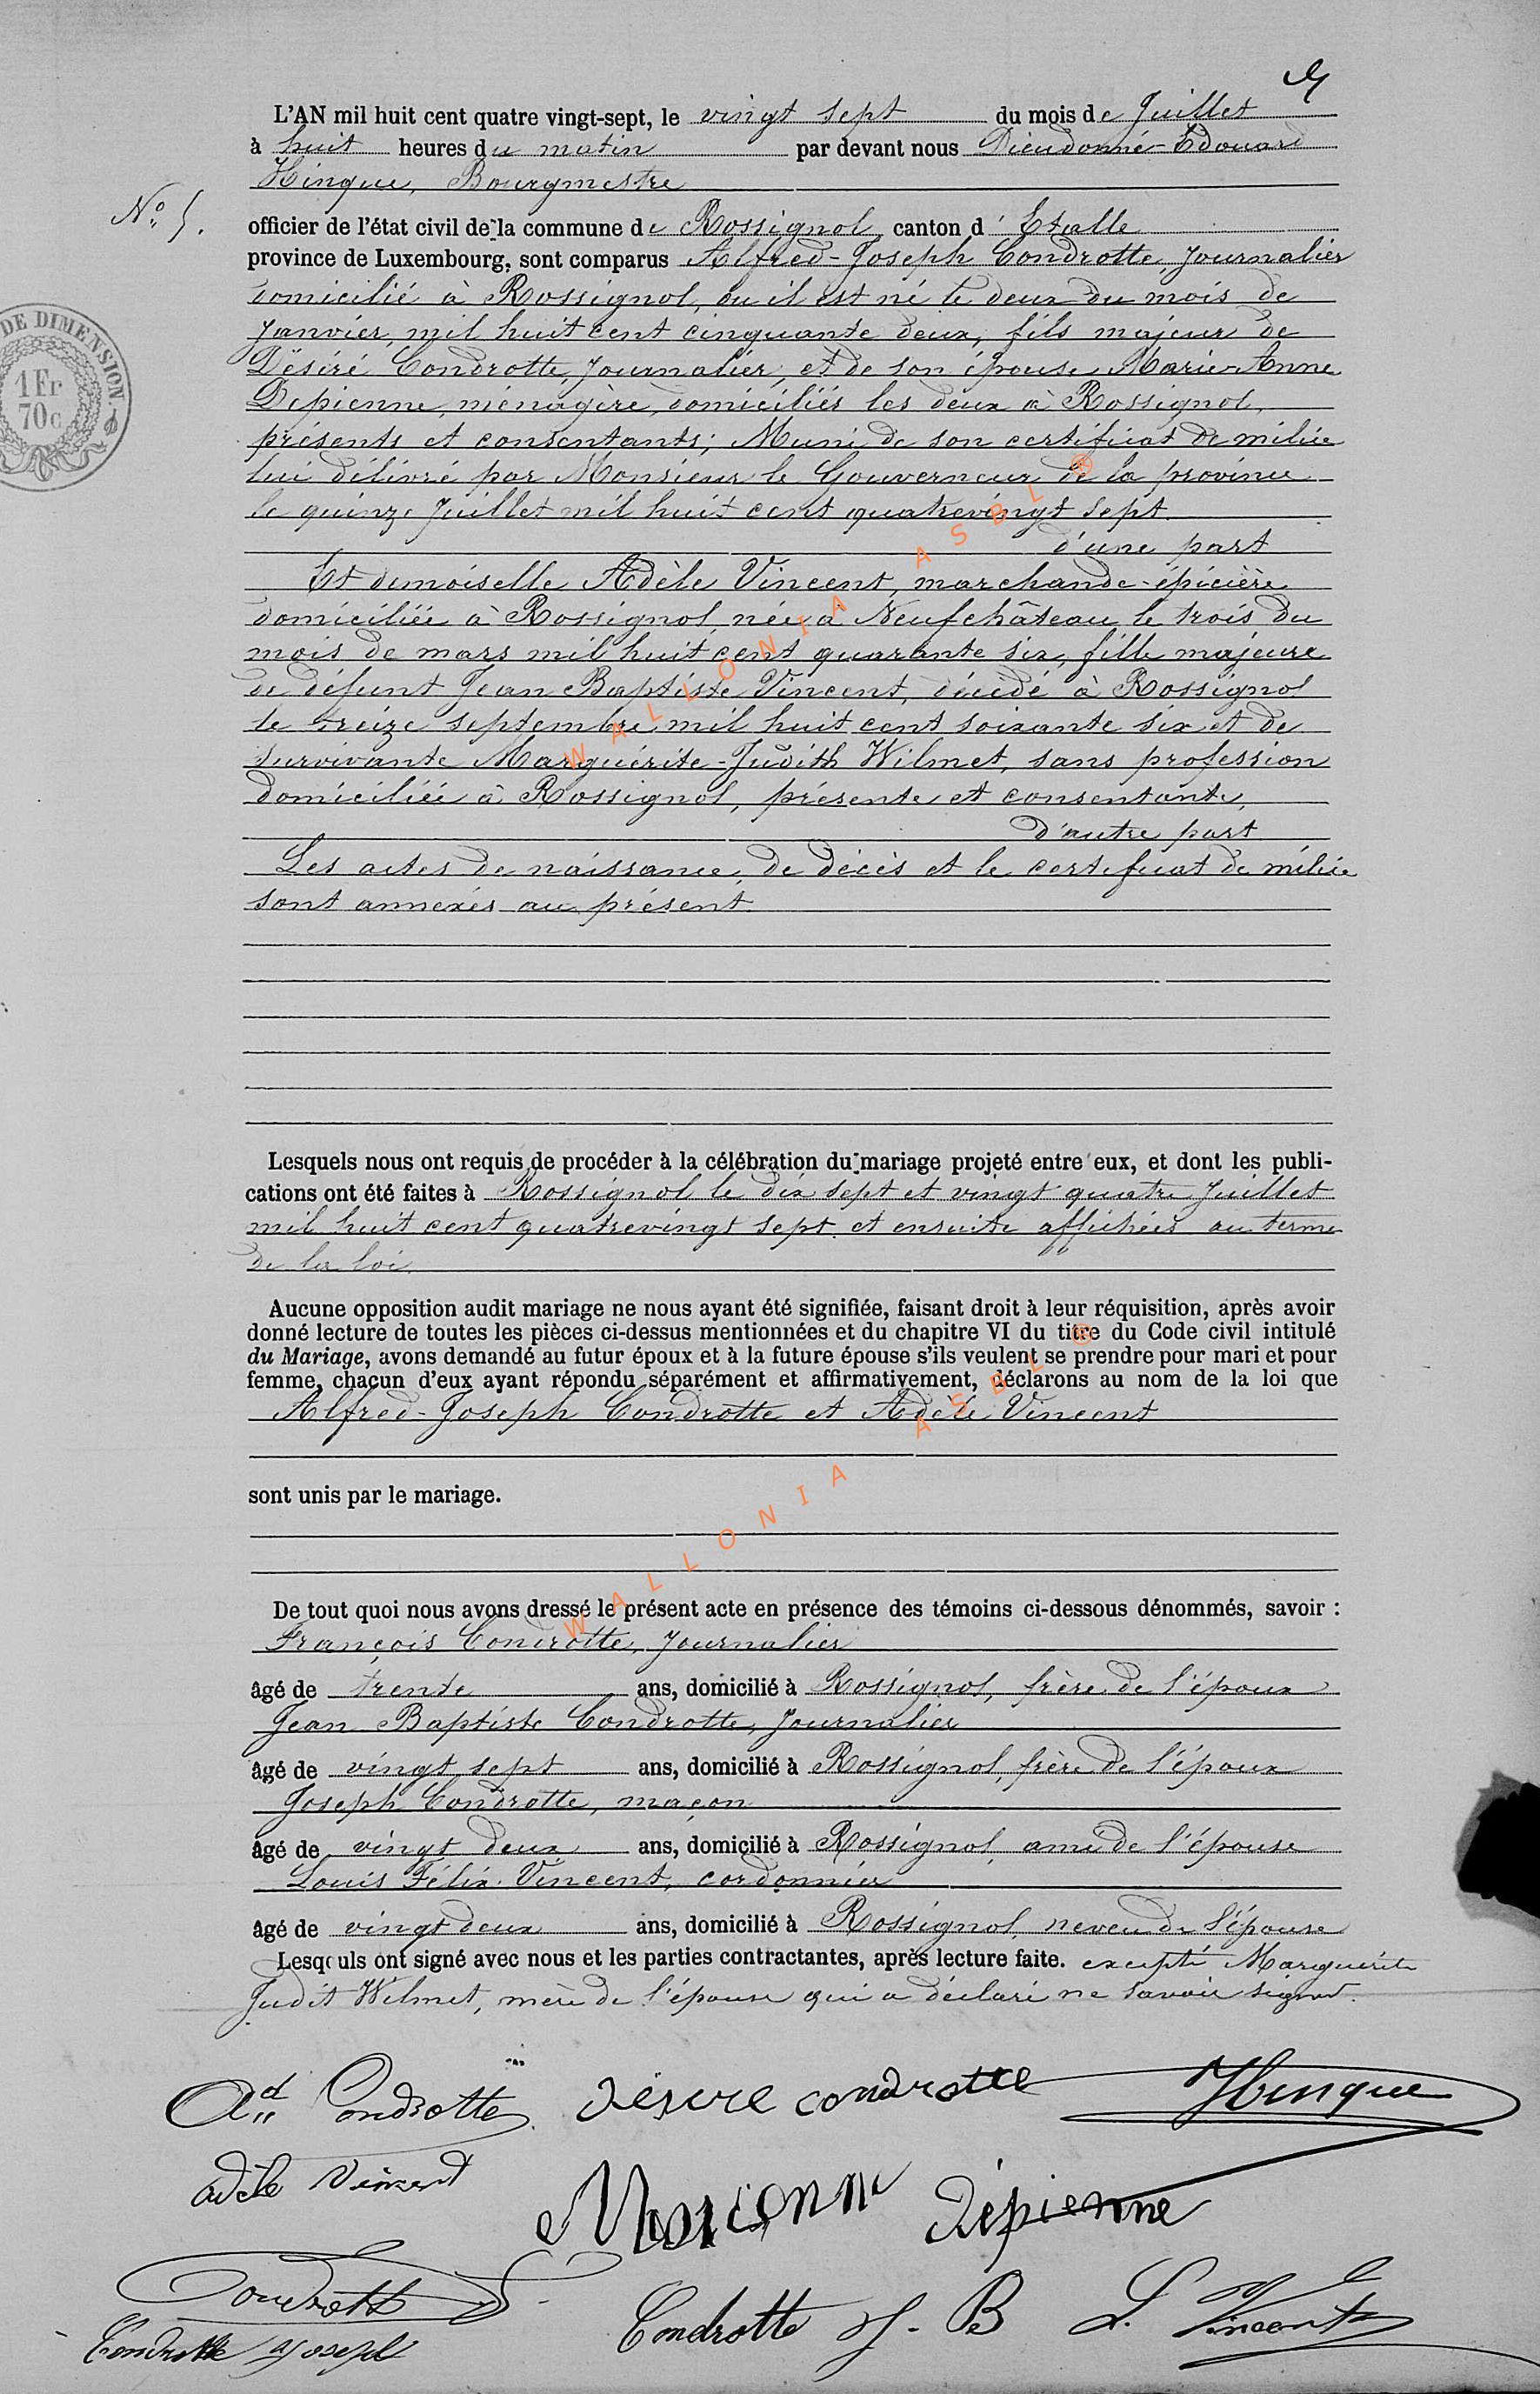 L'AN mil huit cent quatre vingt-sept, le vingt sept du mois de Juillet
à huit heures du matin par devant nous Dieudonné-Edouard
Hinque, Bourgmestre
N° 5.
officier de l'état civil de la commune de Rossignol, canton d'Etalle
province de Luxembourg, sont comparus Alfred-Joseph Condrotte, Journalier
domicilié à Rossignol, ou il est né le deux du mois de
Janvier, mil huit cent cinquante deux, fils majeur de
Désiré Condrotte, Journalier, et de son épouse Marie-Anne
Depienne, ménagère, domiciliés les deux à Rossignol,
présents et consentants; Muni de son certificat de milice
lui délivré par Monsieur le Gouverneur de la province
le quinze Juillet mil huit cent quatrevingt sept.
d'une part
Et demoiselle Adèle Vincent, marchande-épicière
domiciliée à Rossignol, née à Neufchâteau le trois du
mois de mars mil huit cent quarante six, fille majeure
de défunt Jean Baptiste Vincent, décédé à Rossignol
le treize septembre mil huit cent soixante six et de
survivante Marguérite-Judith Wilmet, sans profession
domiciliée à Rossignol, présente et consentante,
d'autre part
Les actes de naissance, de décès et le certificat de milice
sont annexés au présent.
DE DIMENSION
1 Fr
70c
Lesquels nous ont requis de procéder à la célébration du mariage projeté entre eux, et dont les publi-
cations ont été faites à Rossignol le dix sept et vingt quatre Juillet
mil huit cent quatrevingt sept et ensuite affichées au terme
de la loi.
Aucune opposition audit mariage ne nous ayant été signifiée, faisant droit à leur réquisition, après avoir
donné lecture de toutes les pièces ci-dessus mentionnées et du chapitre VI du titre du Code civil intitulé
du Mariage, avons demandé au futur époux et à la future épouse s'ils veulent se prendre pour mari et pour
femme, chacun d'eux ayant répondu séparément et affirmativement, déclarons au nom de la loi que
Alfred-Joseph Condrotte et Adèle Vincent
sont unis par le mariage.
De tout quoi nous avons dressé le présent acte en présence des témoins ci-dessous dénommés, savoir :
François Condrotte, Journalier
âgé de trente ans, domicilié à Rossignol, frère de l'époux
Jean Baptiste Condrotte, Journalier
âgé de vingt sept ans, domicilié à Rossignol, frère de l'époux
Joseph Condrotte, maçon
âgé de vingt deux ans, domicilié à Rossignol, ami de l'épouse
Louis Félix Vincent, cordonnier
âgé de vingt deux ans, domicilié à Rossignol, neveu de l'épouse
Lesquels ont signé avec nous et les parties contractantes, après lecture faite. excepté Marguérite
Judit Wilmet, mère de l'épouse qui a déclaré ne savoir signer.
Ad Condrotte Désiré condrotte Hinque
adèle Vincent
Marianne Dépienne
Condrotte F
Condrotte J-B L. Vincent
Condrotte Joseph
WALLONIA ASBL ®
WALLONIA ASBL ®